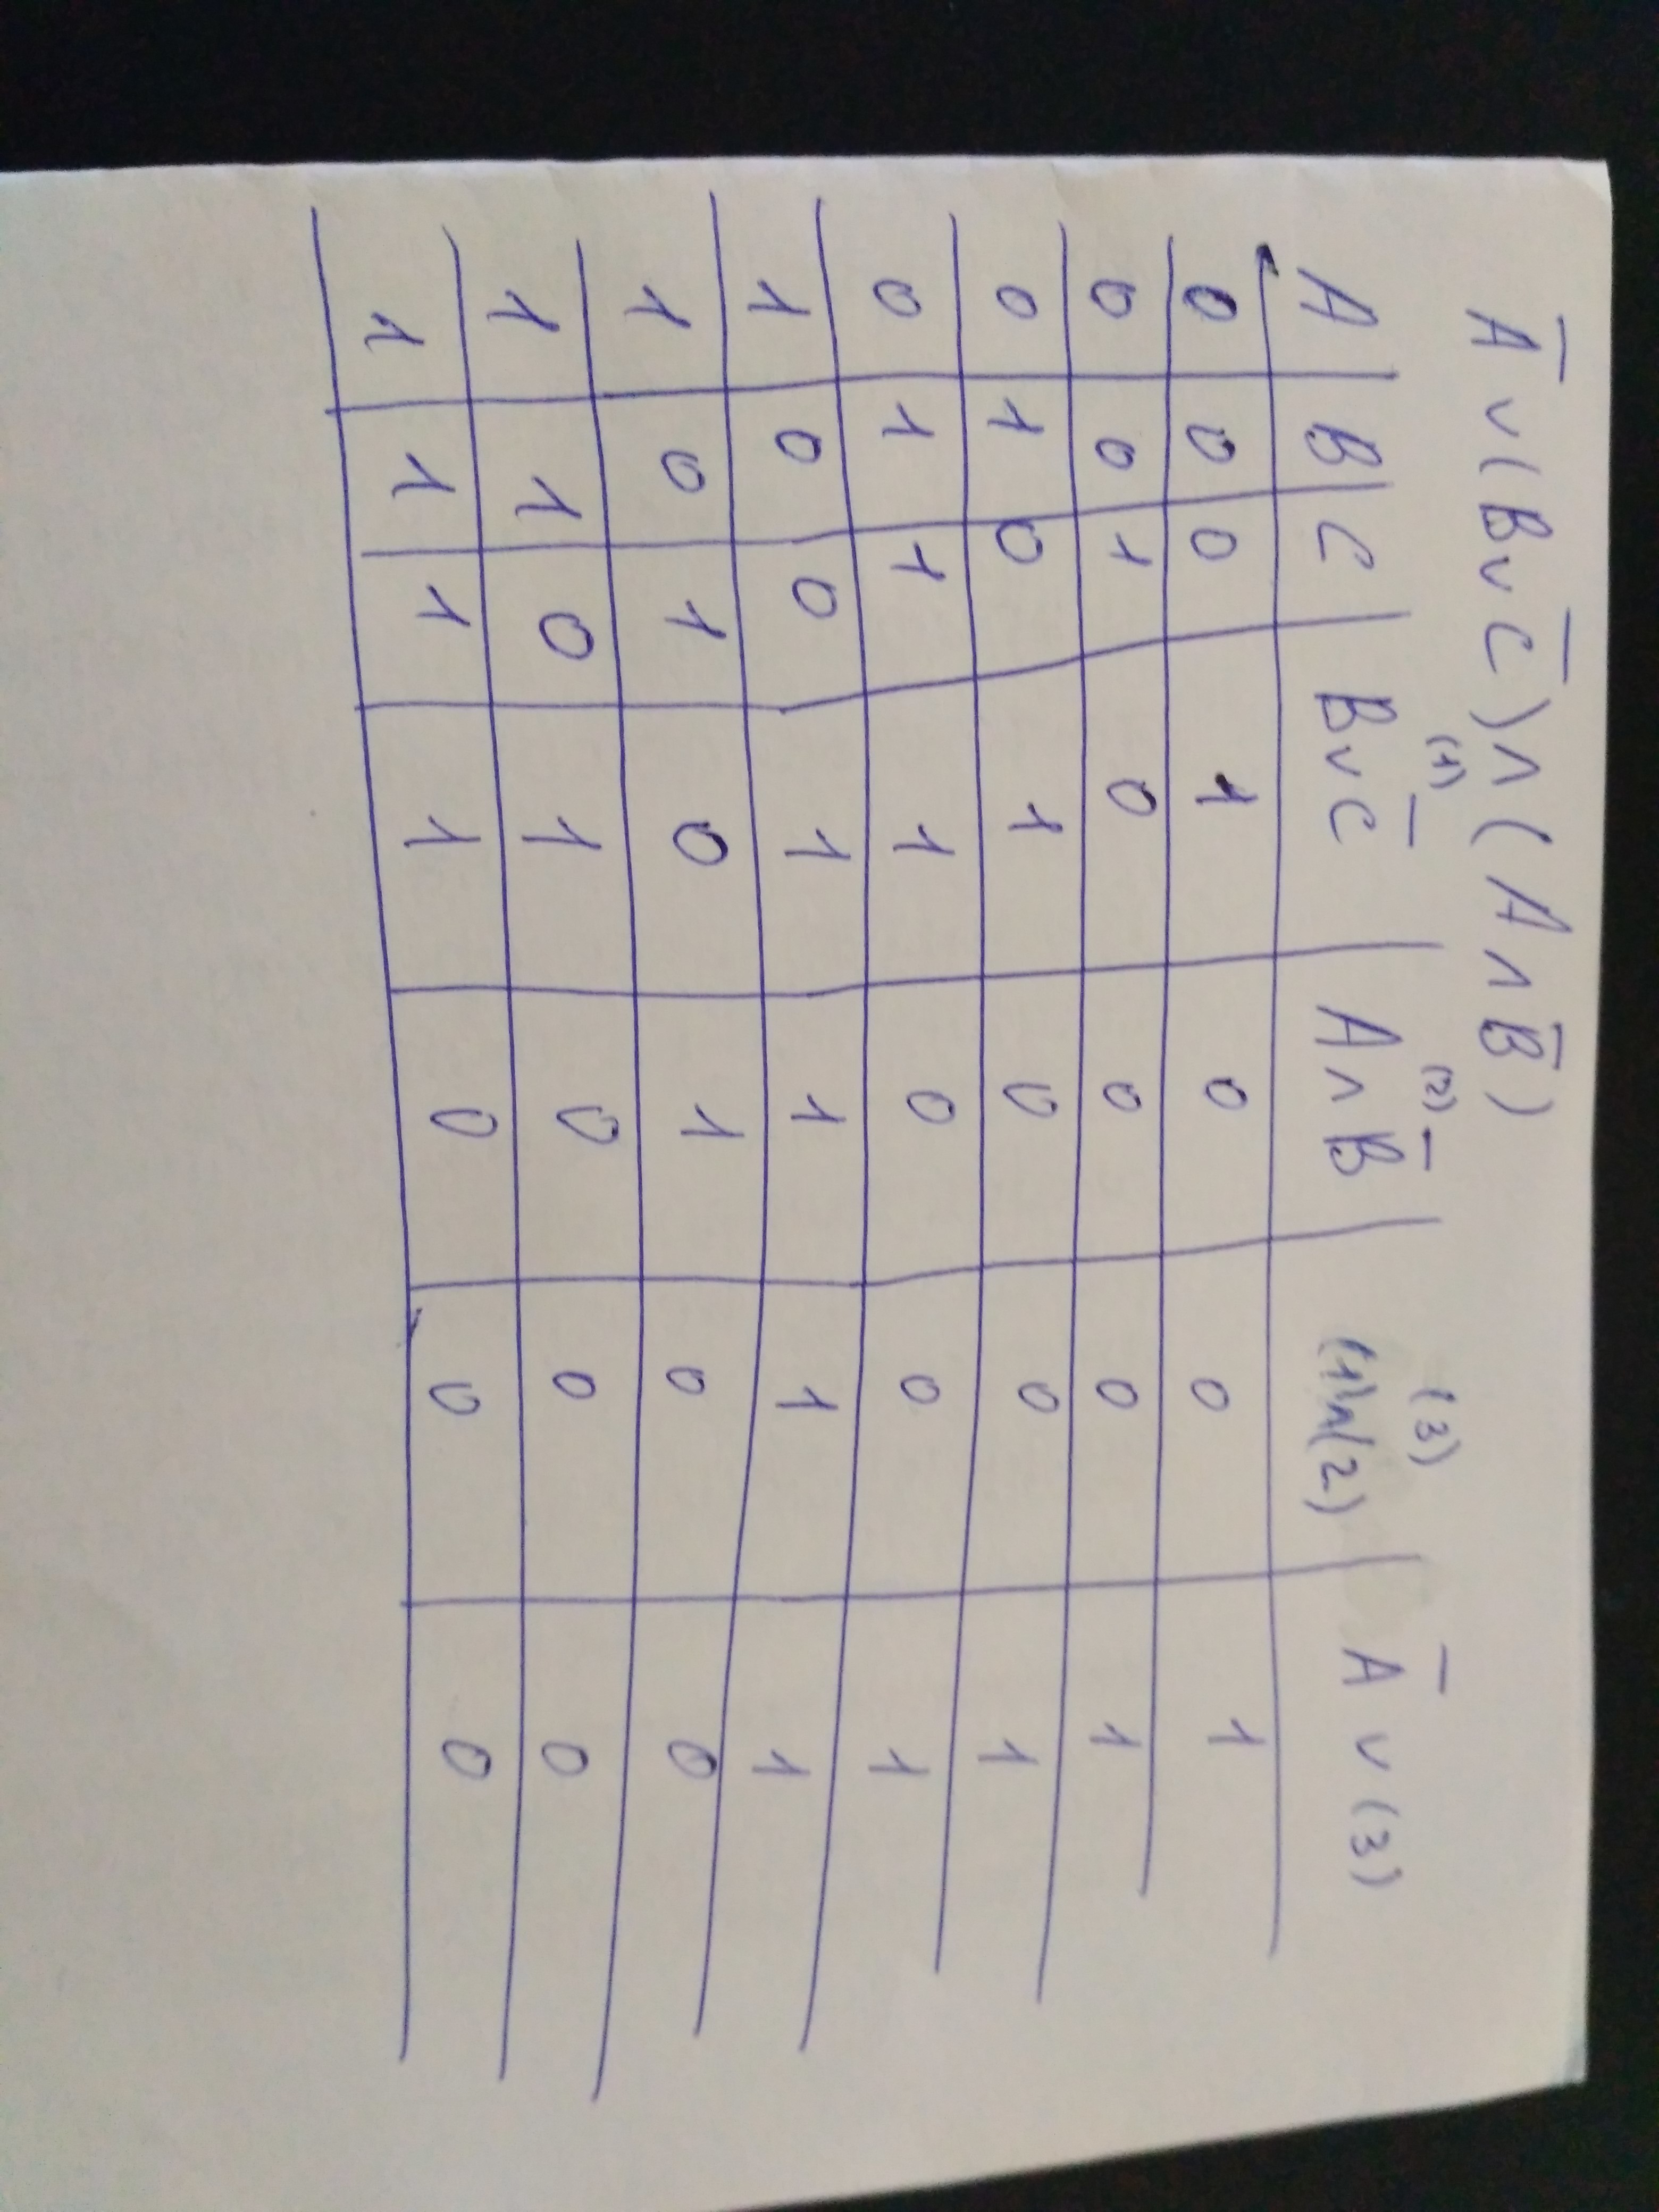 A̅ ∨ (B ∨ C̅) ∧ (A ∧ B̅)
(1) (2) (3)
A | B | C | B ∨ C̅ | A ∧ B̅ | (1)∧(2) | A̅ ∨ (3)
0 | 0 | 0 | 1 | 0 | 0 | 1
0 | 0 | 1 | 0 | 0 | 0 | 1
0 | 1 | 0 | 1 | 0 | 0 | 1
0 | 1 | 1 | 1 | 0 | 0 | 1
1 | 0 | 0 | 1 | 1 | 1 | 1
1 | 0 | 1 | 0 | 1 | 0 | 0
1 | 1 | 0 | 1 | 0 | 0 | 0
1 | 1 | 1 | 1 | 0 | 0 | 0